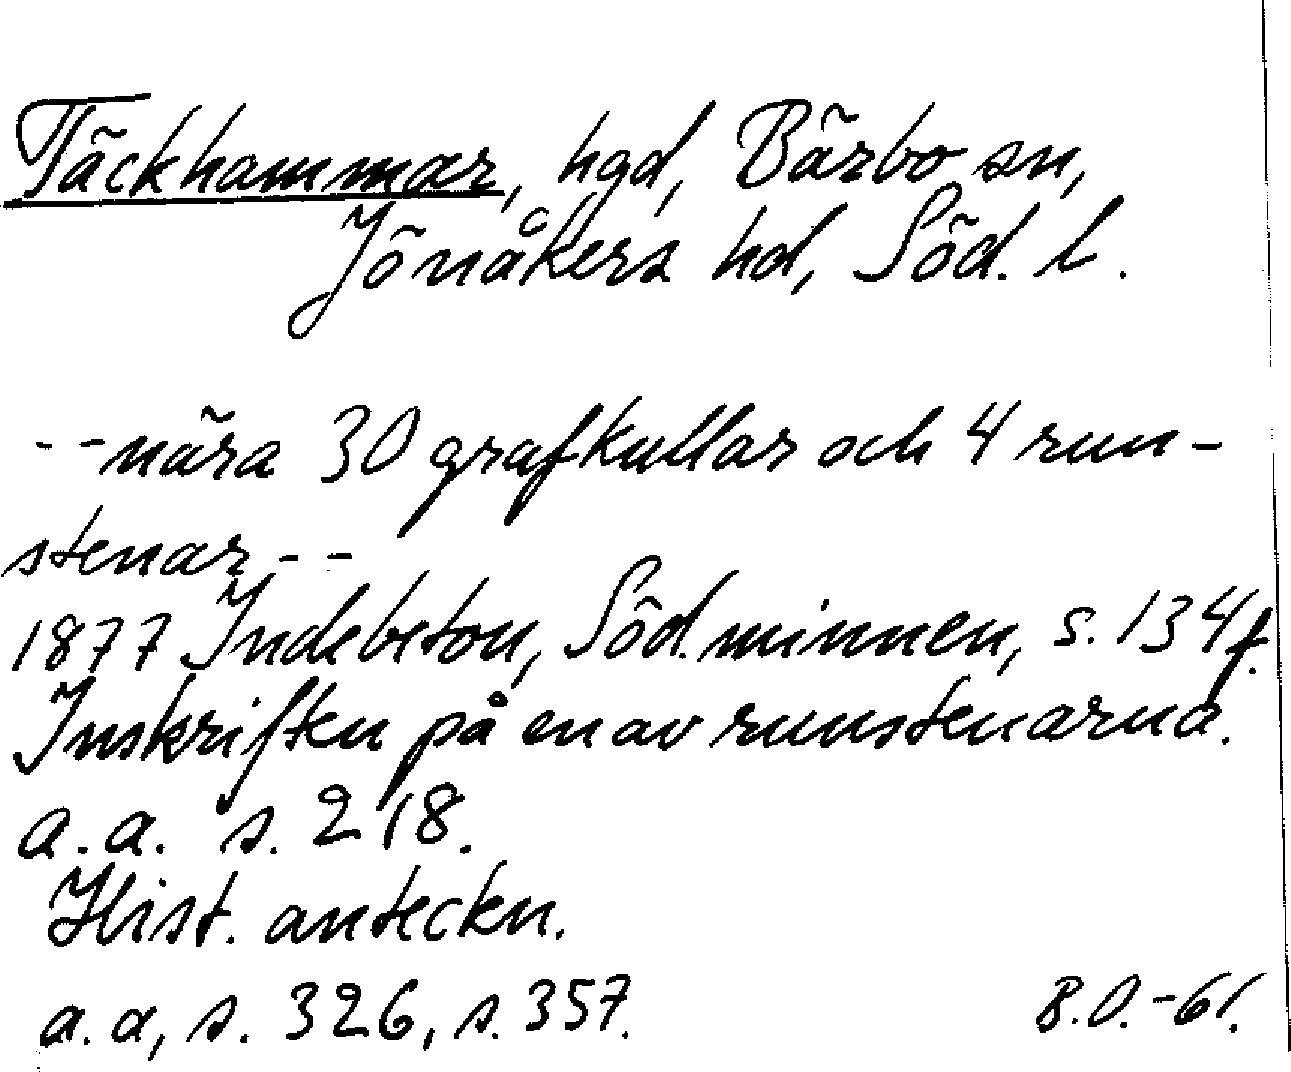 Täckhammar, hgd, Bärbo sn,
Jönåkers hd, Söd. l.
--nära 30 grafkullar och 4 run-
stenar--
1877 Indebetou, Söd. minnen, s. 134 f.
Inskriften på en av runstenarna.
a.a. s. 218.
Hist. anteckn.
a.a, s. 326, s. 357.
B.O.-61.